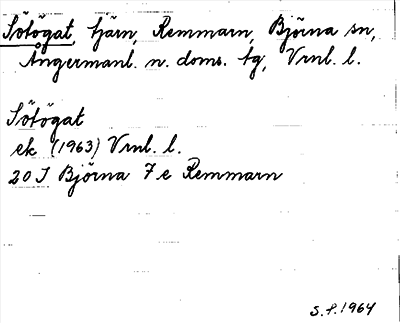 Sötögat, tjärn, Remmarn, Björna sn,
Ångermanl. n. doms. tg, Vrnl. l.
Sötögat
ek (1963) Vrnl. l.
20 J Björna 7e Remmarn
S.F. 1964